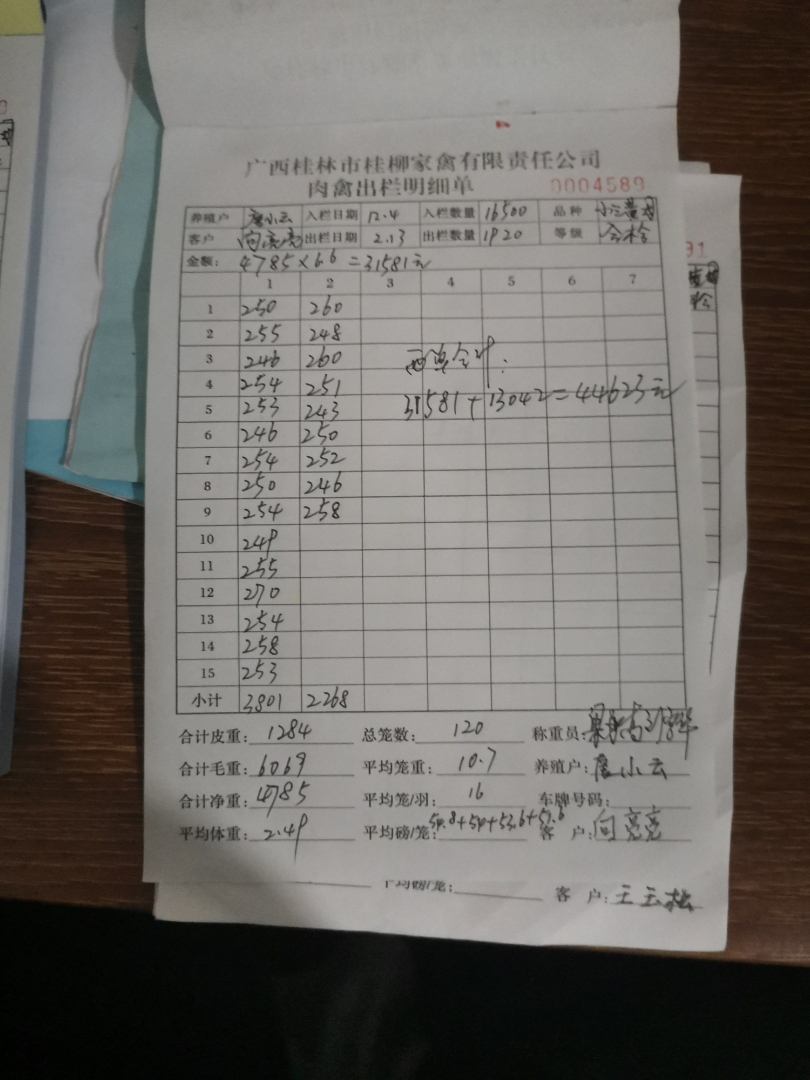 广西桂林市桂柳家禽有限责任公司
肉禽出栏明细单 0004589
养殖户 唐小云 入栏日期 12.4 入栏数量 16500 品种
客户 向亮亮 出栏日期 2.13 出栏数量 1920 等级 合格
金额: 4785×6.6=31581元
1 2 3 4 5 6 7
1 250 260
2 255 248
3 246 260 两单合计:
4 254 251
5 253 243 31581+13042=44623元
6 246 250
7 254 252
8 250 246
9 254 258
10 249
11 255
12 270
13 254
14 258
15 253
小计 3801 2268
合计皮重: 1284 总笼数: 120 称重员:
合计毛重: 6069 平均笼重: 10.7 养殖户: 唐小云
合计净重: 4785 平均笼/羽: 16 车牌号码:
平均体重: 2.49 平均磅/笼: 50.8+50+53.6+51.6 客 户: 向亮亮
平均磅/笼: 客 户: 王玉松
91